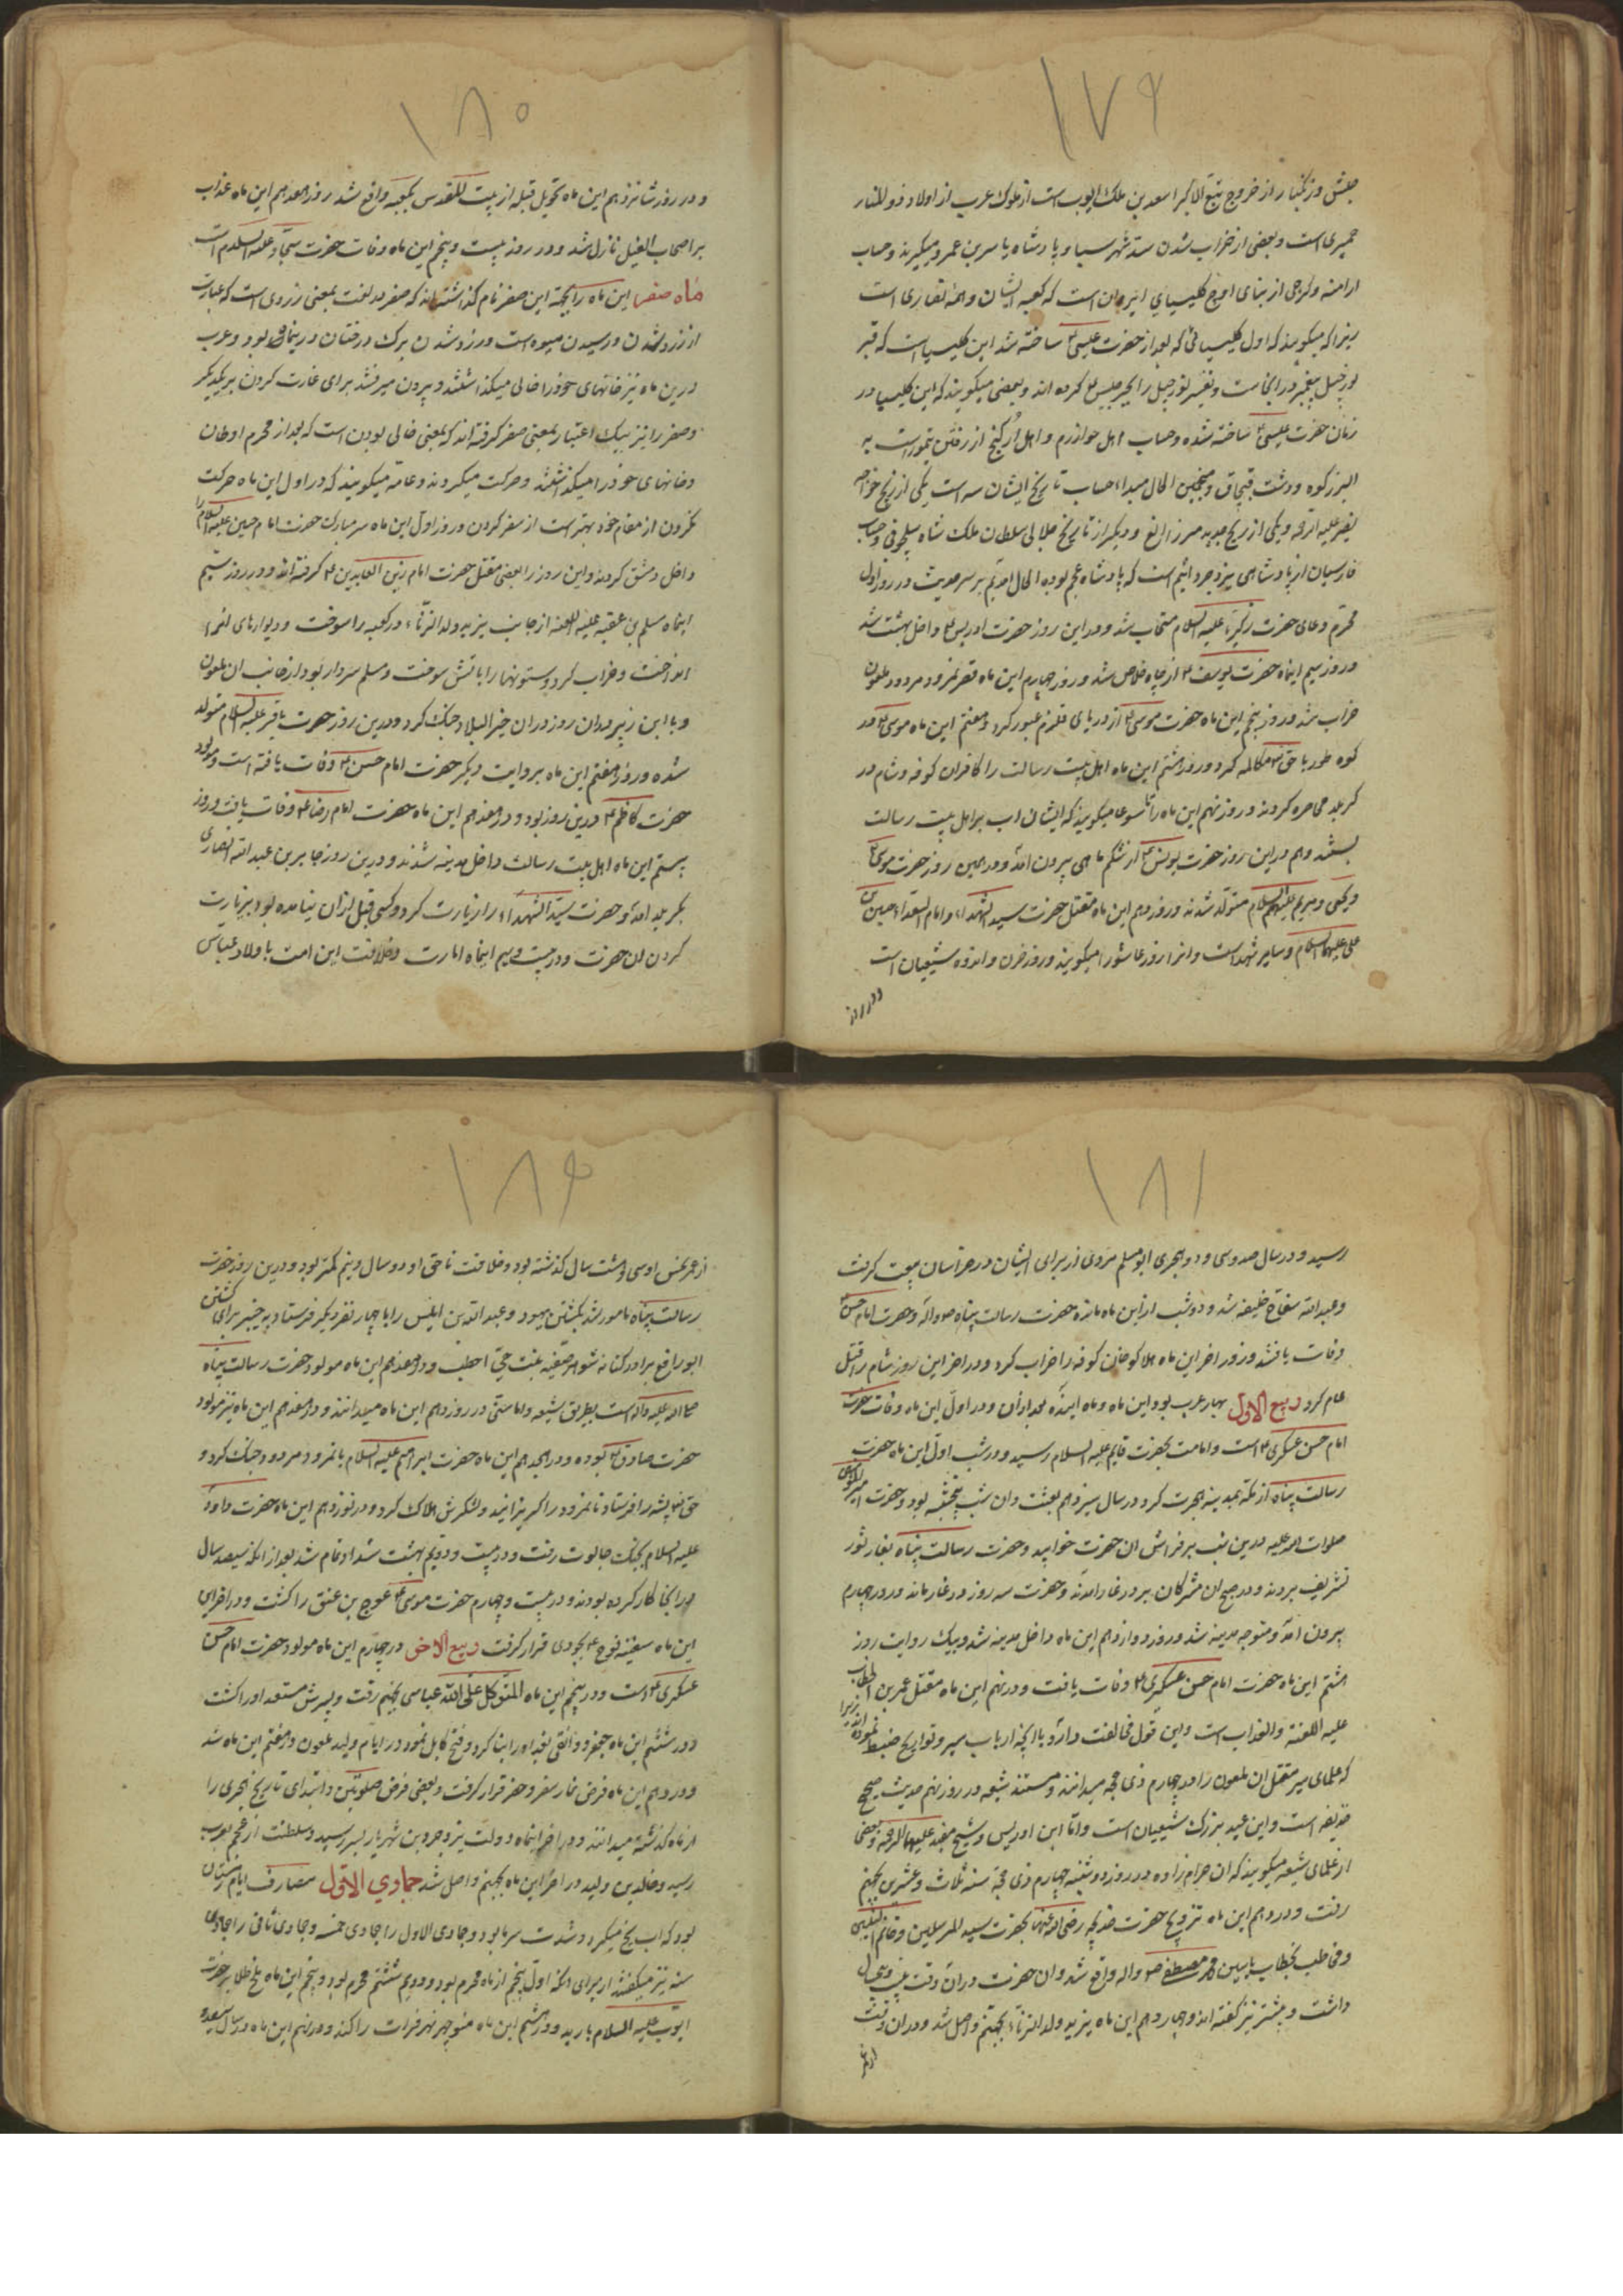 ۱۷۹
حبش و زنگبار از خروج تبع الاکبر اسعد بن ملک ایوب است از ملوک عرب از اولاد ذو المنار
حمیری است و بعضی از خراب شدن سد شهر سبا و پادشاه یاسر بن عمرو میگیرند و حساب
ارامنه و گرجی از بنای اوج کلیسیای ایروان است که کعبه ایشان و ائمه نصاری است
زیرا که میگویند که اول کلیسیائی که بعد از حضرت عیسی ع ساخته شد این کلیسیاست که قبر
پیغمبر در انجاست و کرده اند و بعضی میگویند که این کلیسیا در
زمان حضرت عیسی ع ساخته شده و حساب اهل خوارزم و اهل ارگنج از رفتن تیمور است به
البرز کوه و دشت قبچاق و منجمین الحال مبداء حساب تاریخ ایشان سه است یکی از زیج خواجه
نصیر علیه الرحمه و یکی از زیج جدید میرزا الغ و دیگر از تاریخ جلالی سلطان ملک شاه سلجوقی و حساب
فارسیان از پادشاهی یزدجرد اثیم است که پادشاه عجم بوده الحال امدیم بر سر حدیث در روز اول
محرم دعای حضرت زکریا علیه السلام مستجاب شد و در این روز حضرت ادریس ع داخل بهشت شد
و روز سیم اینماه حضرت یوسف ع از چاه خلاص شد و روز چهارم این ماه قصر نمرود مردود ملعون
خراب شد و روز پنجم این ماه حضرت موسی ع از دریای قلزم عبور کرد و هفتم این ماه موسی ع در
کوه طور با حق تع مکالمه کرد و روز هشتم این ماه اهل بیت رسالت را کافران کوفه و شام در
کربلا محاصره کردند و روز نهم این ماه را تاسوعا میگویند که ایشان اب بر اهل بیت رسالت
بستند و هم در این روز حضرت یونس ع از شکم ماهی بیرون امد و در همین روز حضرت موسی ع
و یحیی و مریم علیهم السلام متولد شدند و روز دهم این ماه مقتل حضرت سید الشهداء و امام السعداء حسین بن
علی علیهما السلام و سایر شهداست و انرا روز عاشورا میگویند و روز حزن و اندوه شیعیان است
و در روز
۱۸۰
و در روز شانزدهم این ماه تحویل قبله از بیت المقدس بکعبه واقع شد روز هفدهم این ماه عذاب
بر اصحاب الفیل نازل شد و در روز بیست و پنجم این ماه وفات حضرت سجاد علیه السلام است
ماه صفر این ماه را بجهة این صفر نام گذاشته اند که صفر در لغت بمعنی زردی است که عبارت
از زرد شدن و رسیدن میوه است و زرد شدن برک درختان در اینماه بود و عرب
درین ماه نیز خانهای خود را خالی میگذاشتند و بیرون میرفتند برای غارت کردن بر یکدیگر
و صفر را نیز بیک اعتبار بمعنی صفر گرفته اند که بمعنی خالی بودن است که بعد از محرم اوطان
و خانهای خود را میگذاشتند و حرکت میکردند و عامه میگویند که در اول این ماه حرکت
نکردن از مقام خود بهتر است از سفر کردن و روز اول این ماه سر مبارک حضرت امام حسین علیه السلام را
داخل دمشق کردند و این روز را بعضی مقتل حضرت امام زین العابدین ع گرفته اند و در روز سیم
اینماه مسلم بن عقبه علیه اللعنه از جانب یزید ولد الزناء در کعبه را سوخت و دیوارهای انرا
انداخت و خراب کرد و ستونها را باتش سوخت و مسلم سردار بود از جانب ان ملعون
و با ابن زبیر دران روز دران خیر البلاد جنک کرد و درین روز حضرت باقر علیه السلام متولد
شده و روز هفتم این ماه بروایت دیگر حضرت امام حسن ع وفات یافته است و مولود
حضرت کاظم ع درین روز بود و در هفدهم این ماه حضرت امام رضا ع وفات یافت و روز
بیستم این ماه اهل بیت رسالت داخل مدینه شدند و درین روز جابر بن عبد الله انصاری
بکربلا امد و حضرت سید الشهداء را زیارت کرد و کسی قبل از ان نیامده بود بزیارت
کردن ان حضرت و در بیست و سیم اینماه امارت و خلافت این امت باولاد عباس
۱۸۱
رسید و در سال صد و سی و دو هجری ابو مسلم مروی از برای ایشان در خراسان بیعت گرفت
و عبد الله سفاح خلیفه شد و دو شب از این ماه مانده حضرت رسالت پناه ص و اله و حضرت امام حسن ع
وفات یافتند و روز اخر این ماه هلاکو خان کوفه را خراب کرد و در اخر این روز شام را قتل
عام کرد ربیع الاول بهار عرب بود این ماه و ماه اینده بعد ازان و در اول این ماه وفات حضرت
امام حسن عسکری ع است و امامت بحضرت قایم علیه السلام رسید و در شب اول این ماه حضرت
رسالت پناه از مکه بمدینه هجرت کرد در سال سیزدهم بعثت و ان شب پنجشنبه بود و حضرت امیر المؤمنین
صلوات الله علیه در این شب بر فراش ان حضرت خوابید و حضرت رسالت پناه بغار ثور
تشریف بردند و در صبح ان مشرکان بر در غار امدند و حضرت سه روز در غار ماند و در چهارم
بیرون امد و متوجه مدینه شد و روز دوازدهم این ماه داخل مدینه شد و بیک روایت روز
هشتم این ماه حضرت امام حسن عسکری ع وفات یافت و در نهم این ماه مقتل عمر بن الخطاب
علیه اللعنة و العذاب است و این قول مخالفت دارد با انچه ارباب سیر و تواریخ ضبط نموده اند زیرا
که علمای سیر مقتل ان ملعون را در چهارم ذی حجه میدانند و مستند شیعه در روز نهم حدیث صحیح
حذیفه است و این عید بزرک شیعیان است و اما ابن ادریس و شیخ مفید علیهما الرحمه و بعضی
از علمای شیعه میگویند که ان حرام زاده در روز دوشنبه چهارم ذی حجه سنه ثلاث و عشرین بجهنم
رفت و در دهم این ماه تزویج حضرت خدیجه رضی الله عنها بحضرت سید المرسلین و خاتم النبیین
و مخاطب بخطاب یاسین محمد مصطفی ص و اله واقع شد و ان حضرت دران وقت بیست و پنج سال
داشت و بیشتر نیز گفته اند و چهاردهم این ماه یزید ولد الزناء بجهنم واصل شد و دران وقت
۱۸۲
از عمر نحس او سی و هشت سال گذشته بود و خلافت ناحق او دو سال و نیم کمتر بود و درین روز حضرت
رسالت پناه مامور شد بکشتن یهود و عبد الله بن انیس را با چهار نفر دیگر فرستاد به خیبر برای کشتن
ابو رافع برادر کنانه شوهر صفیه بنت حی اخطب و در هفدهم این ماه مولود حضرت رسالت پناه
صلی الله علیه و اله است بطریق شیعه و اما سنی در روز دوازدهم این ماه میدانند و در هفدهم این ماه نیز مولود
حضرت صادق ع بوده و در هجدهم این ماه حضرت ابراهیم علیه السلام با نمرود مردود جنک کرد و
حق تع پشه را فرستاد تا نمرود را گریزانید و لشکرش هلاک کرد و در نوزدهم این ماه حضرت داود
علیه السلام بجنک جالوت رفت و در بیست و دویم بهشت شداد تمام شد بعد از انکه سیصد سال
در انجا کار کرده بودند و در بیست و چهارم حضرت موسی ع عوج بن عنق را کشت و در اخرهای
این ماه سفینه نوح ع بجودی قرار گرفت ربیع الاخر در چهارم این ماه مولود حضرت امام حسن
عسکری ع است و در پنجم این ماه المتوکل علی الله عباسی بجهنم رفت و پسرش مستعد او را کشت
و در ششم این ماه جعفر دوانقی بغداد را بنا کرد و فتح کابل نمود در ایام ولید ملعون و در هفتم این ماه شد
و در دهم این ماه فرض نماز سفر و حضر قرار گرفت و بعضی فرض صلوتین و ابتدای تاریخ هجری را
از ماه گذشته میدانند و در اخر اینماه دولت یزدجرد بن شهریار بسر رسید و سلطنت از عجم بعرب
رسید و خالد بن ولید در اخر این ماه بجهنم واصل شد جمادی الاول مصارف ایام زمستان
بود که اب یخ میکرد و شدت سرما بود و جمادی الاول را جمادی خمسه و جمادی ثانی را جمادی
سته نیز میگفتند از برای انکه اول پنجم از ماه محرم بود و دویم ششم محرم بود و پنجم این ماه ملخ طلا بر حضرت
ایوب علیه السلام بارید و در هشتم این ماه منوچهر نهر فرات را کند و در نهم این ماه در سال